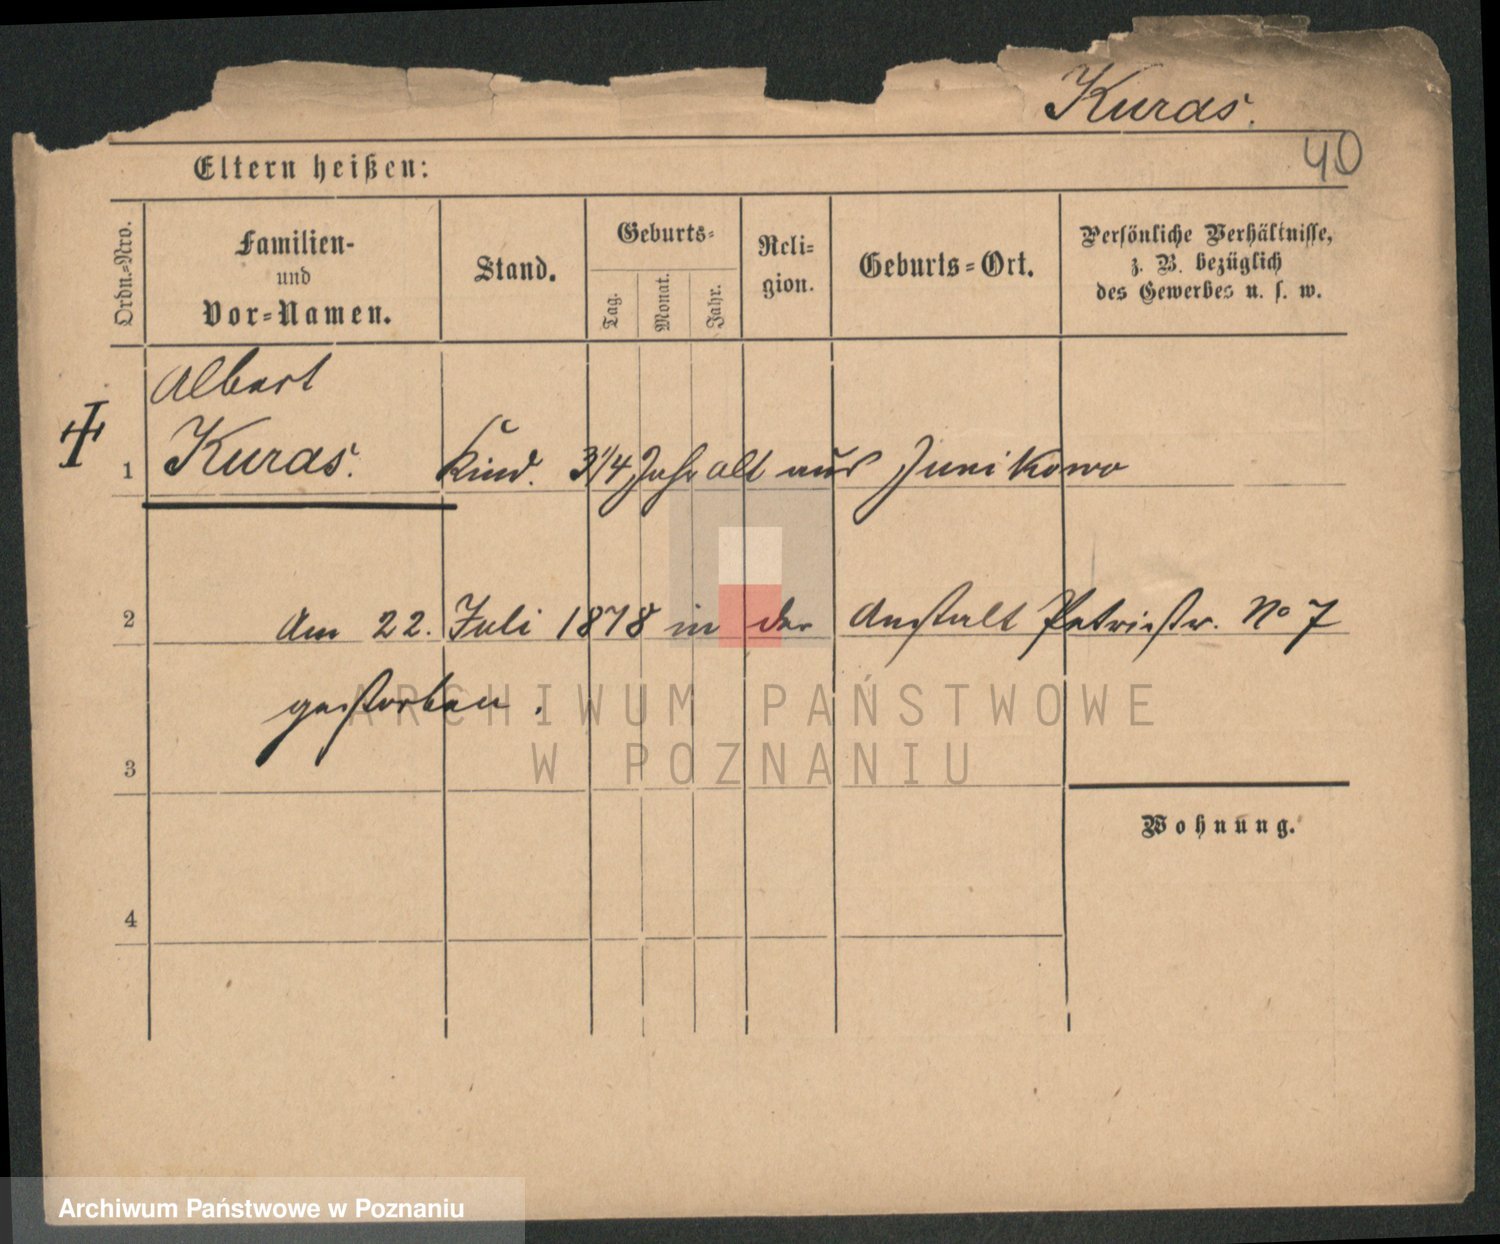 Kuras.
40
Eltern heißen:
Ordn.=Nro.
Familien-
und
Vor=Namen.
Stand.
Geburts=
Tag.
Monat.
Jahr.
Reli=
gion.
Geburts=Ort.
Persönliche Verhältnisse,
z. B. bezüglich
des Gewerbes u. s. w.
Albert
1 Kuras. Kind. 3/4 Jahr alt aus Junikowo
2 Am 22. Juli 1878 in der Anstalt Petristr. No 7
gestorben.
3
Wohnung.
4
ARCHIWUM PAŃSTWOWE
W POZNANIU
Archiwum Państwowe w Poznaniu